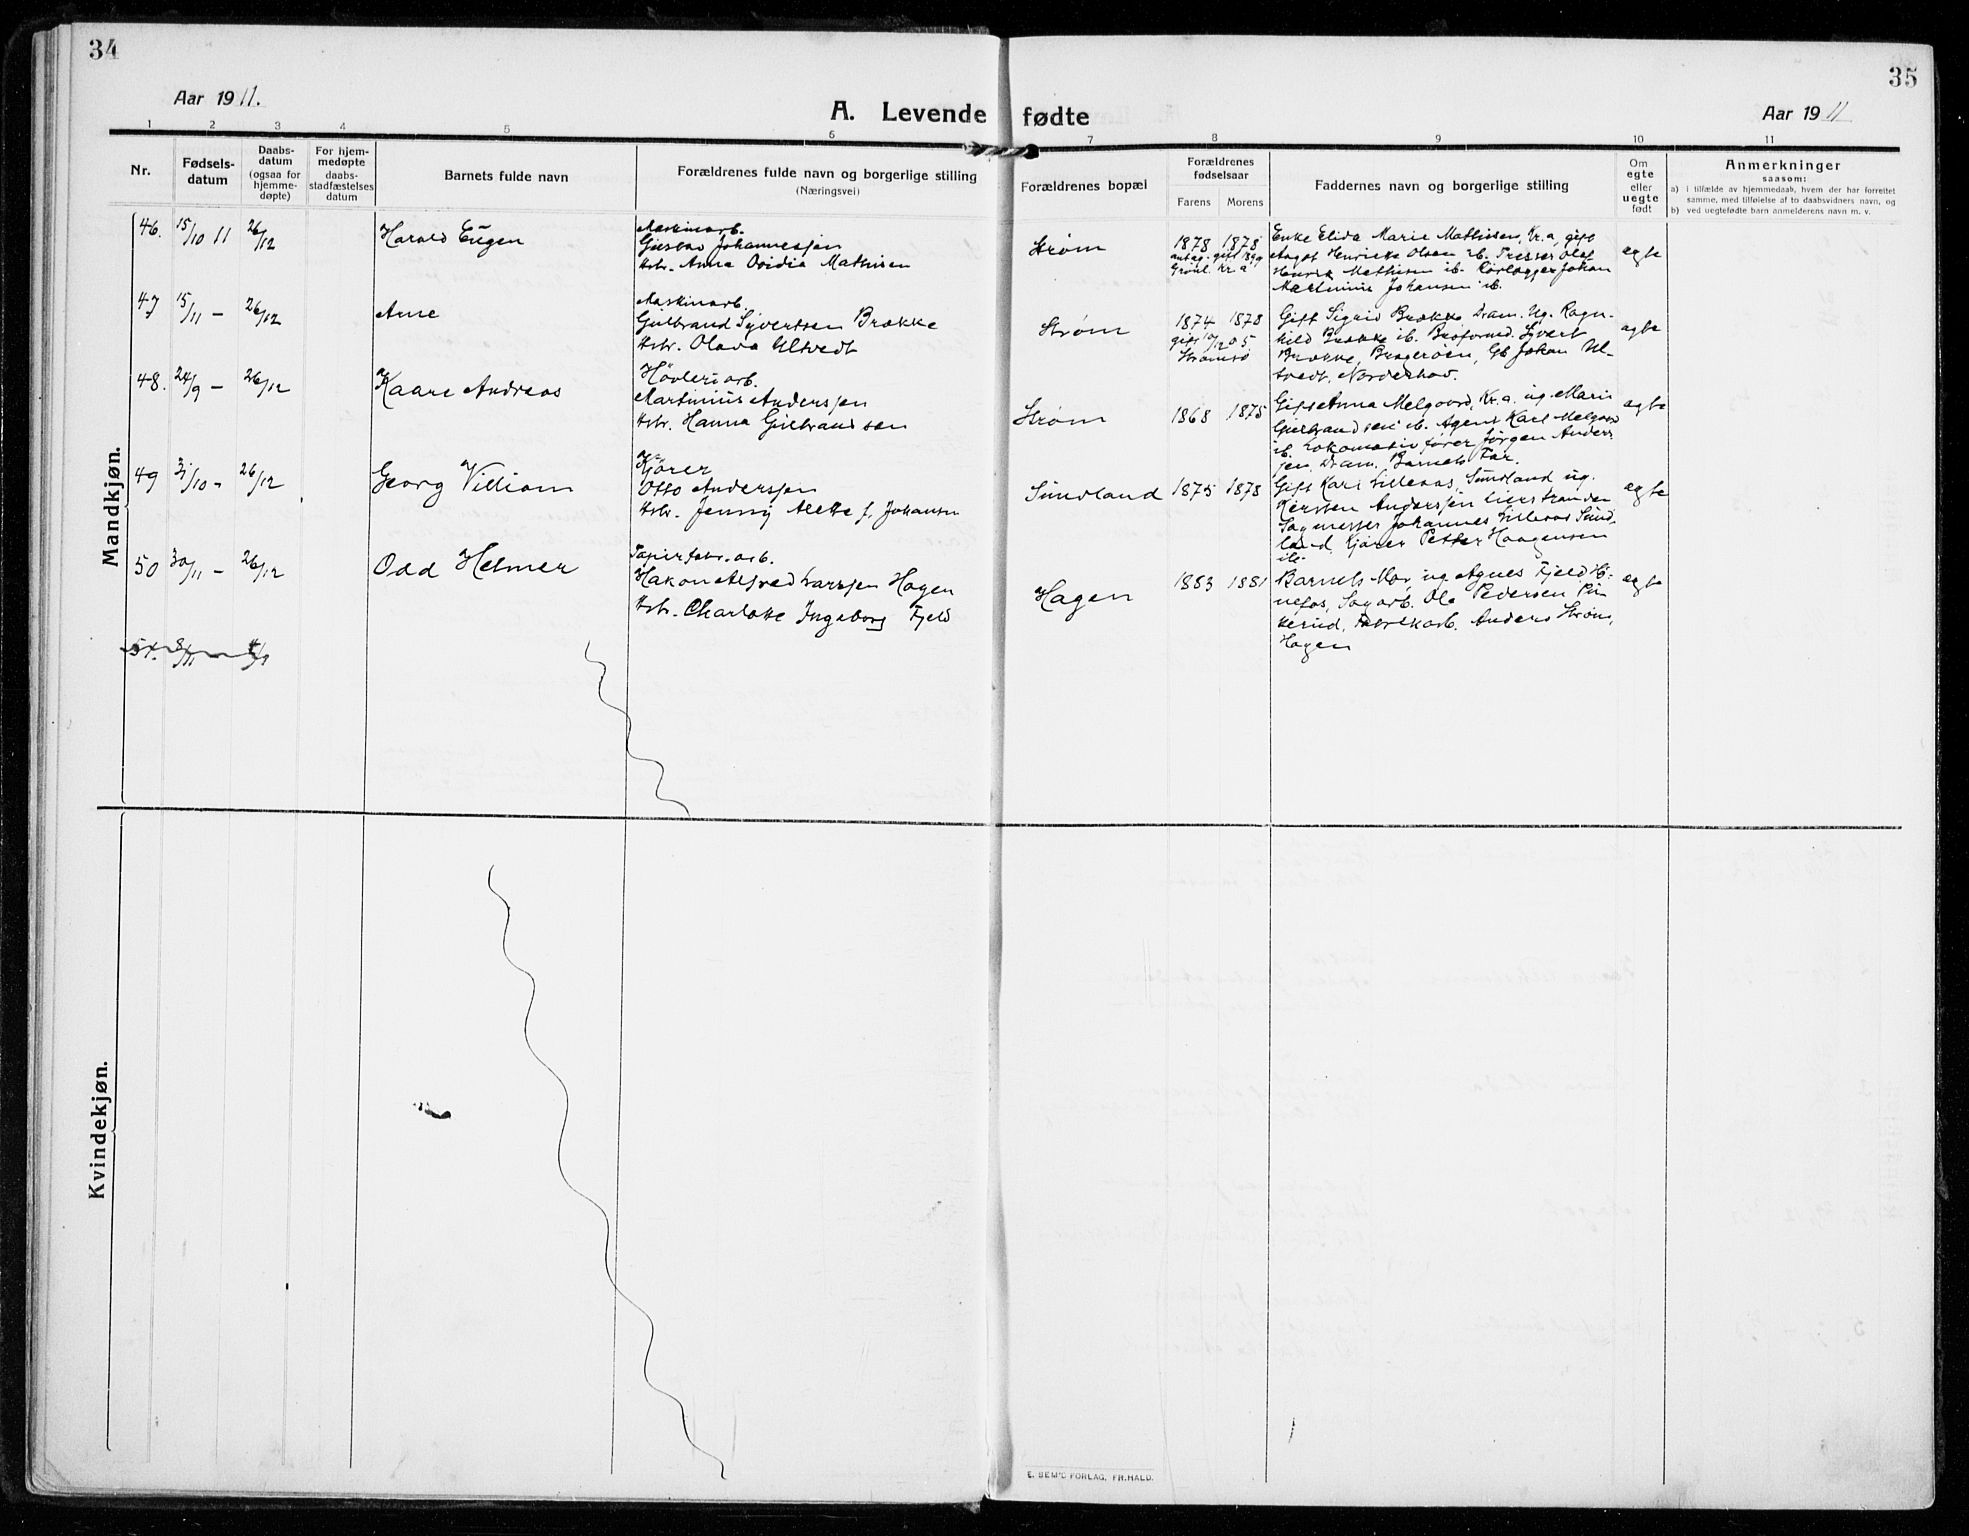 34
35
Aar 1911.
A. Levende fødte
Aar 1911
1 2 3 4 5 6 7 8 9 10 11
Nr.
Fødsels-
datum
Daabs-
datum
(ogsaa for
hjemme-
døpte)
For hjem-
medøpte
daabs-
stadfæstelses
datum
Barnets fulde navn
Forældrenes fulde navn og borgerlige stilling
(Næringsvei)
Forældrenes bopæl
Forældrenes
fødselsaar
Farens Morens
Faddernes navn og borgerlige stilling
Om
egte
eller
uegte
født
Anmerkninger
saasom:
a) i tilfælde av hjemmedaab, hvem der har forrettet
samme, med tilføielse af to daabsvidners navn, og
b) ved uegtefødte barn anmelderens navn m. v.
Mandkjøn.
46. 15/10 11 26/12 Harald Eugen
Maskinarb.
Gustav Johannessen
Hstr. Anna Ovidia Mathisen
Strøm
1878 1878
gift 1899
Grønl. Kr.a
Enke Elida Marie Mathisen, Kr.a, gift
Aagot Henriette Olsen ib. Presser Olaf
Henrik Mathisen ib. Rørlægger Johan
Martinius Johansen ib.
egte
47 15/11 – 26/12 Arne
Maskinarb.
Gulbrand Syvertsen Brække
Hstr. Olava Ultvedt
Strøm
1874 1878
gift 10/12 05
Strømsø
Gift Sigrid Brække Dram. Ug. Ragn-
hild Brække ib. Brøformd. Syvert
Brække, Bragerøen, Gb Johan Ul-
tvedt, Norderhov.
egte
48. 24/9 – 26/12 Kaare Andreas
Høvleriarb.
Martinius Anderssen
Hstr. Hanna Gulbrandsen
Strøm
1868 1875
Gift Anna Melgaard, Kr.a. ug. Marie
Gulbrandsen ib. Agent Karl Melgaard
ib. Lokomotivfører Jørgen Anders-
sen, Dram. Barnets Far.
egte
49 31/10 – 26/12 Georg Villiam
Kjører
Otto Anderssen
Hstr. Jenny Alette f. Johansen
Sundland
1875 1878
Gift Kari Lilleaas, Sundland ug.
Kersten Anderssen Lierstranden
Sagmester Johannes Lilleaas Sund-
land, Kjører Petter Haagensen
ib.
egte
50 30/11 – 26/12 Odd Helmer
Papirfabr.arb.
Hakon Alfred Larssen Hagen
Hstr. Charlotte Ingeborg Fjeld
Hagen
1883 1881
Barnets Mor, ug Agnes Fjeld Hø-
nefos, Sagarb. Ole Pedersen Pin-
kerud, Fabrikarb. Anders Strøm,
Hagen
egte
51.
Kvindekjøn.
E. SEM'S FORLAG, FR.HALD.